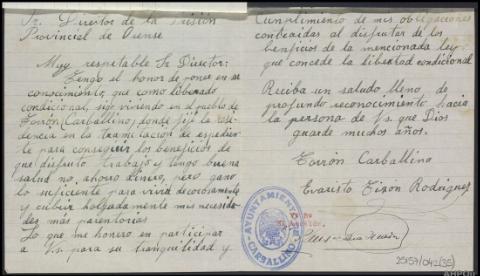 Sr. Director de la Prisión
Provincial de Orense
Muy respetable Sr Director:
Tengo el honor de poner en su
conocimiento, que como liberado
condicional, sigo viviendo en el pueblo de
Torrón (Carballino) donde fijé la resi
dencia en la tramitación de expedien
te para conseguir los beneficios de
que disfruto trabajo y tengo buena
salud no, ahorro dinero, pero gano
lo suficiente para vivir decorosamente
y cubrir holgadamente mis necesida
des más perentorias
Lo que me honro en participar
a Vs. para su tranquilidad y
Cumplimiento de mis obligaciones
contraidas al disfrutar de los
beneficios de la mencionada ley
que concede la libertad condicional
Reciba un saludo lleno de
profundo reconocimiento hacia
la persona de Vs. que Dios
guarde muchos años.
Torrón Carballino
Evaristo Tizon Rodriguez
AYUNTAMIENTO
CARBALLINO
Vº Bº
25157/042(35)